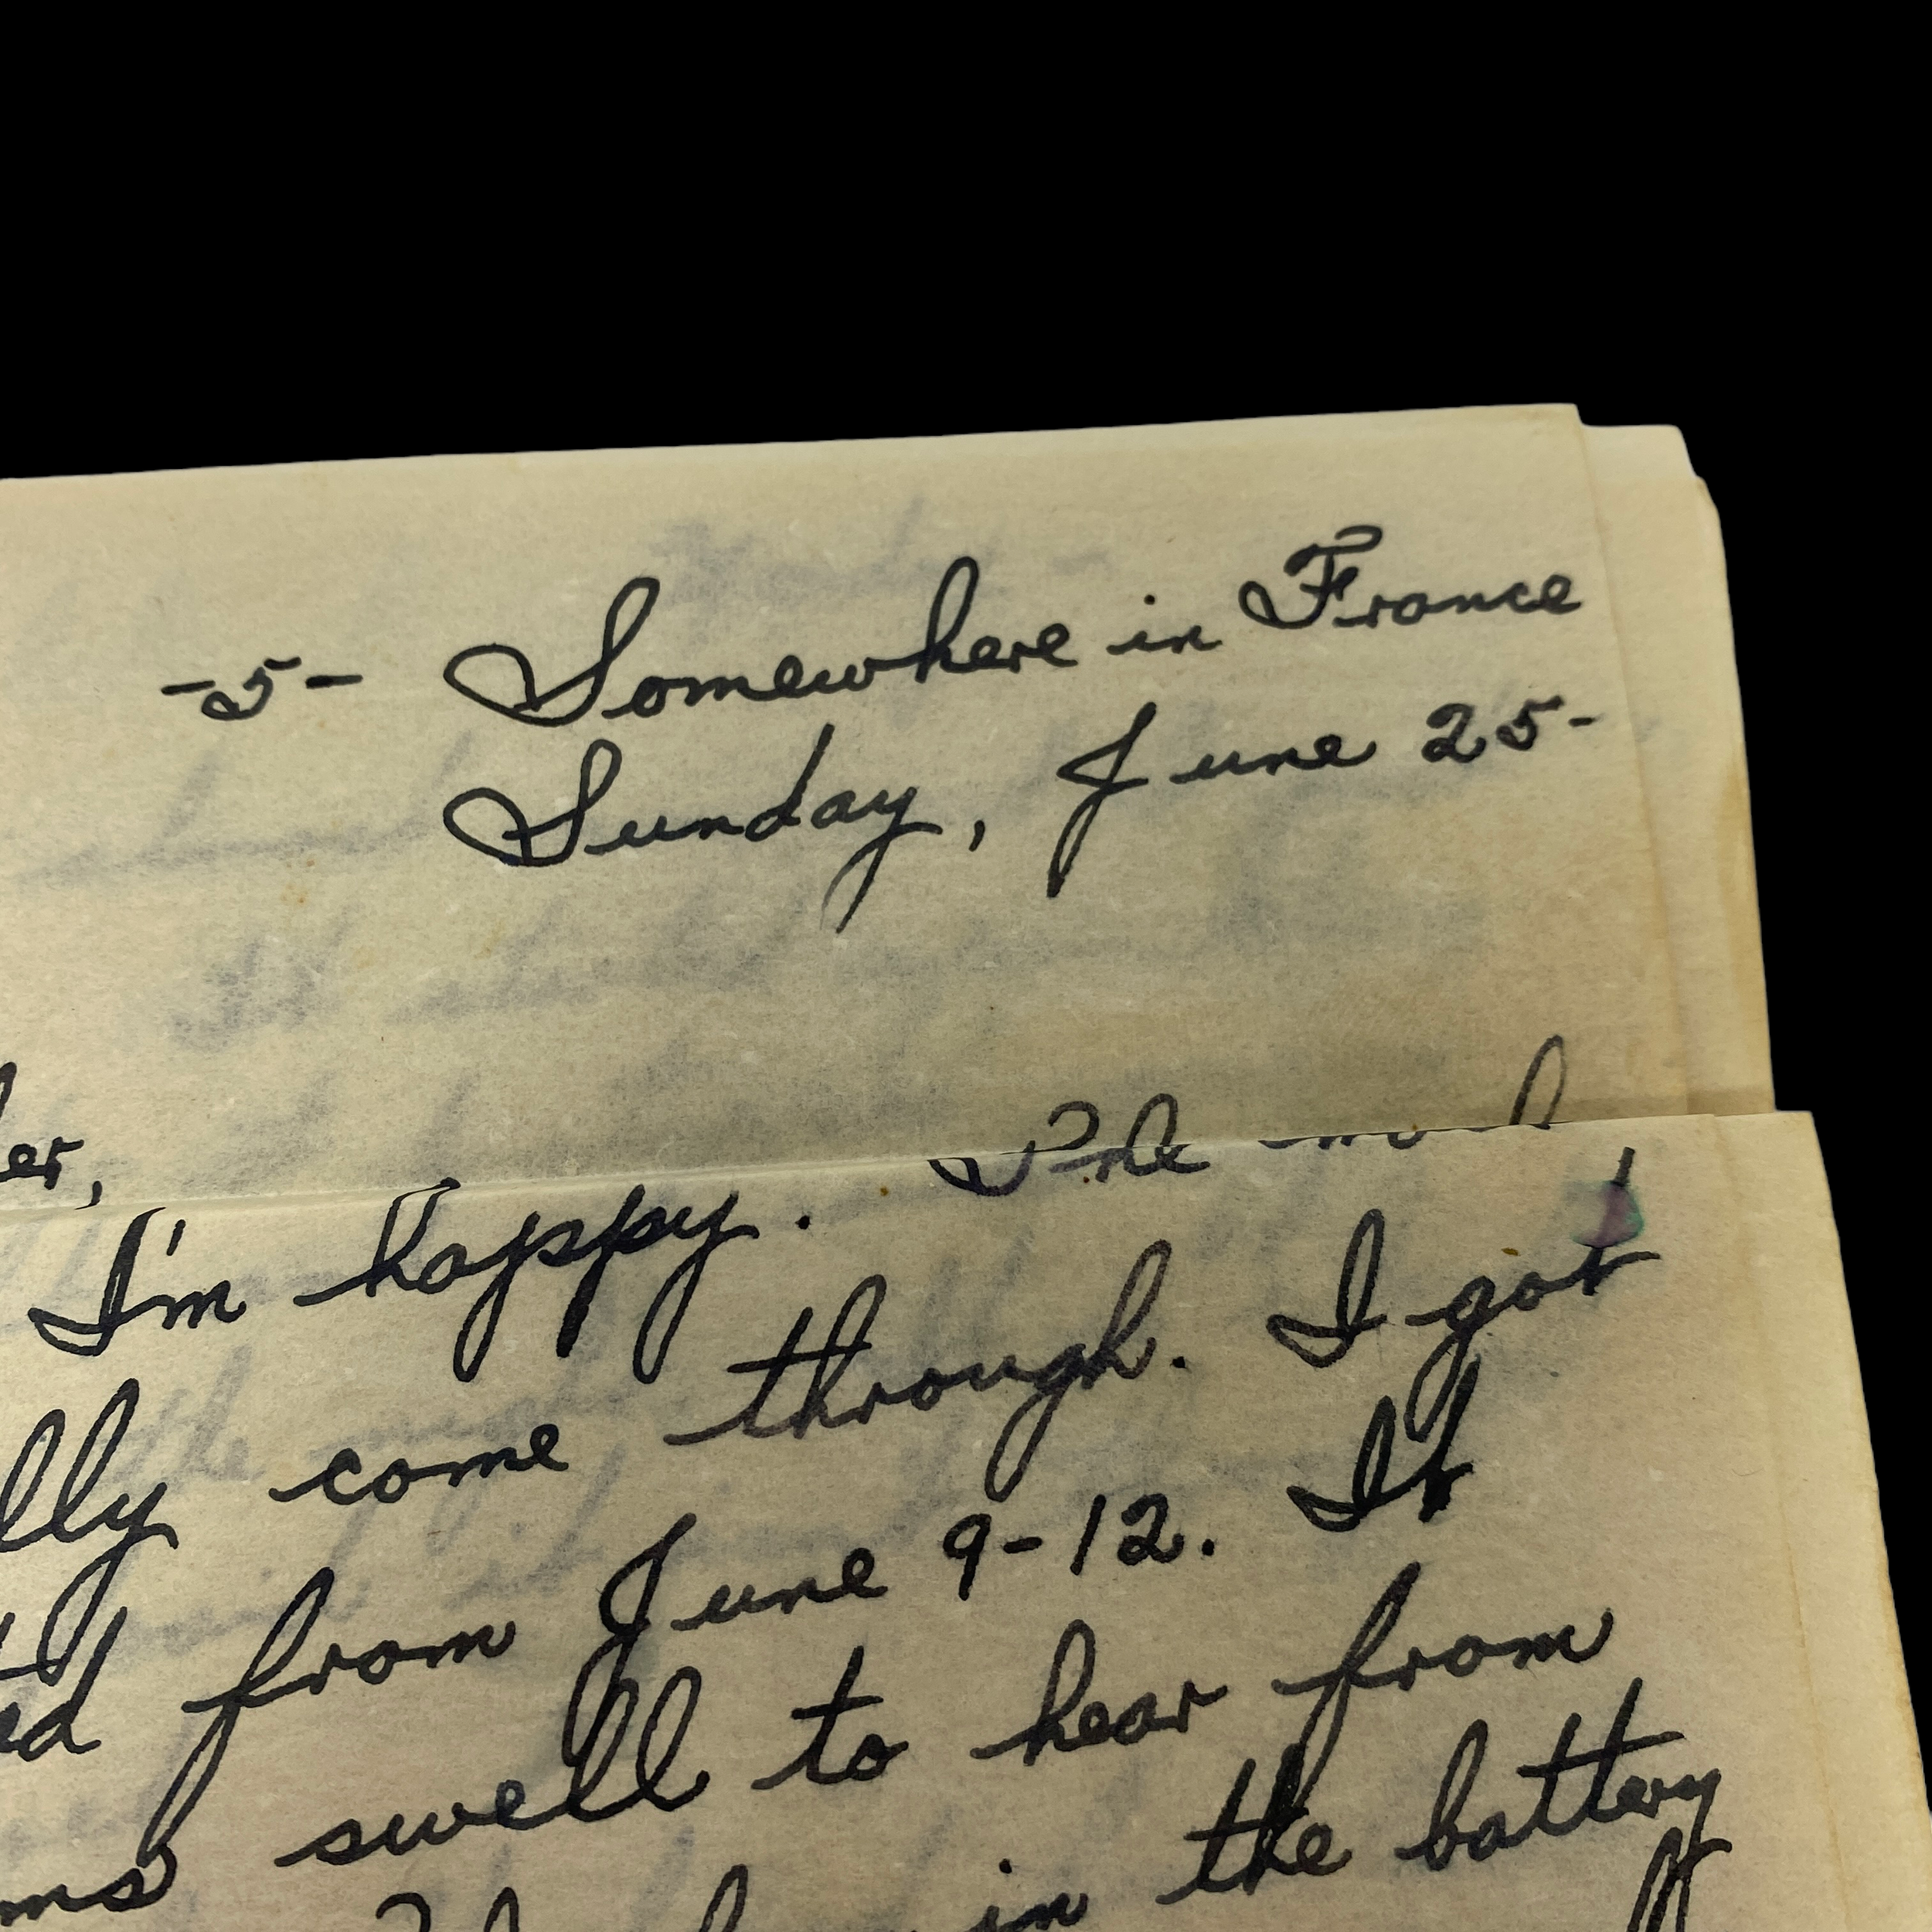 -5- Somewhere in France
Sunday, June 25-
er,
I'm happy. The mail
lly come through. I got
ed from June 9-12. It
ms swell to hear from
in the battery